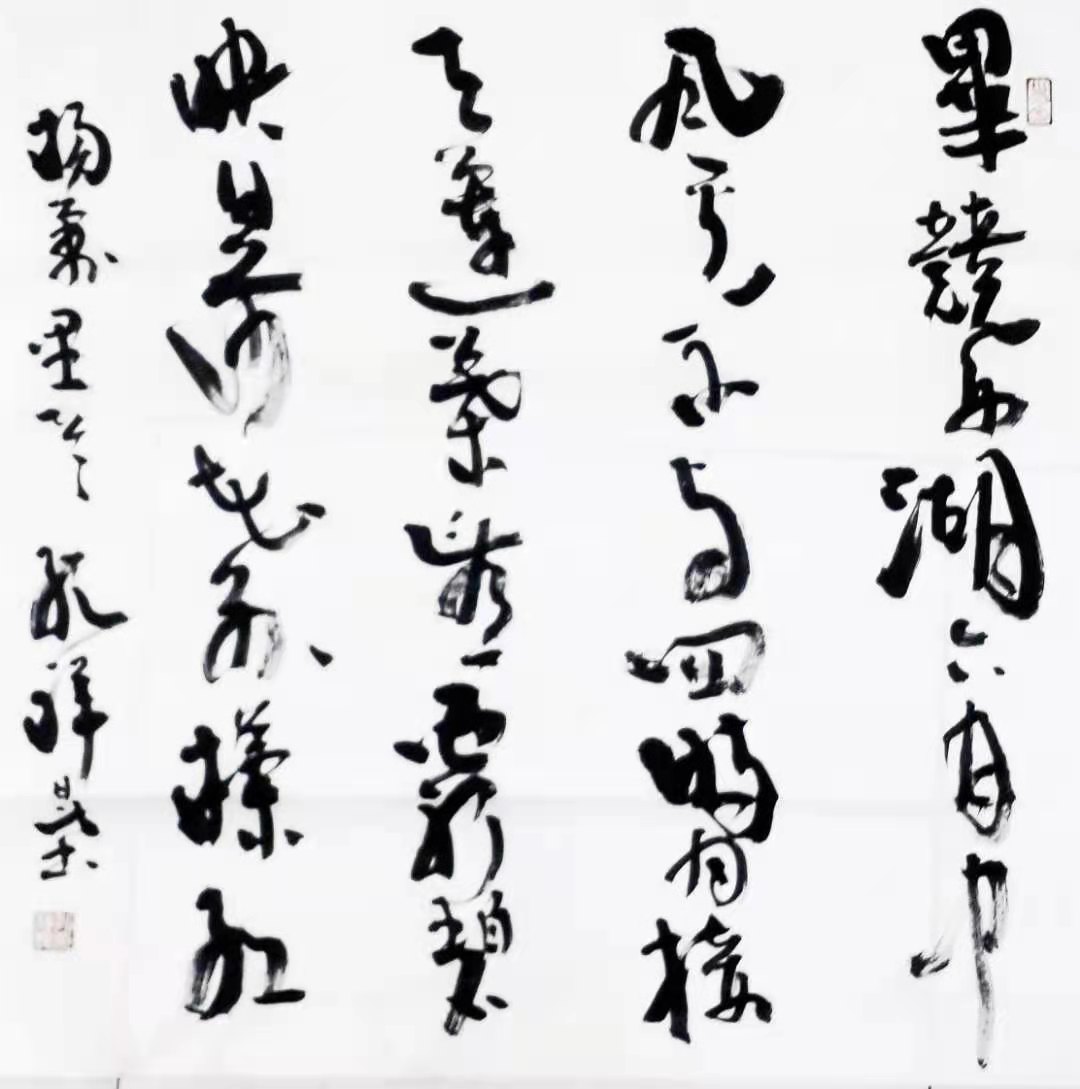 畢競西湖六月中
風光不與四時同接
天蓮葉無窮碧
映日荷花別樣紅
楊萬里 祥